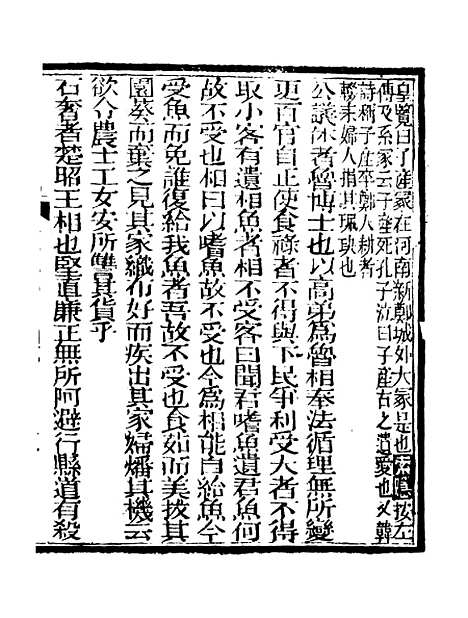 皇覽曰子産冢在河南新鄭城外大冢是也索隱按左
傳及系家云子産死孔子泣曰子産古之遺愛也又韓
詩稱子産卒鄭人耕者
輟耒婦人捐其珮玦也
公議休者魯博士也以高弟爲魯相奉法循理無所變
更百官自正使食祿者不得與下民爭利受大者不得
取小客有遺相魚者相不受客曰聞君嗜魚遺君魚何
故不受也相曰以嗜魚故不受也今爲相能自給魚今
受魚而免誰復給我魚者吾故不受也食茹而美拔其
園葵而棄之見其家織布好而疾出其家婦燔其機云
欲令農士工女安所讐其貨乎
石奢者楚昭王相也堅直廉正無所阿避行縣道有殺